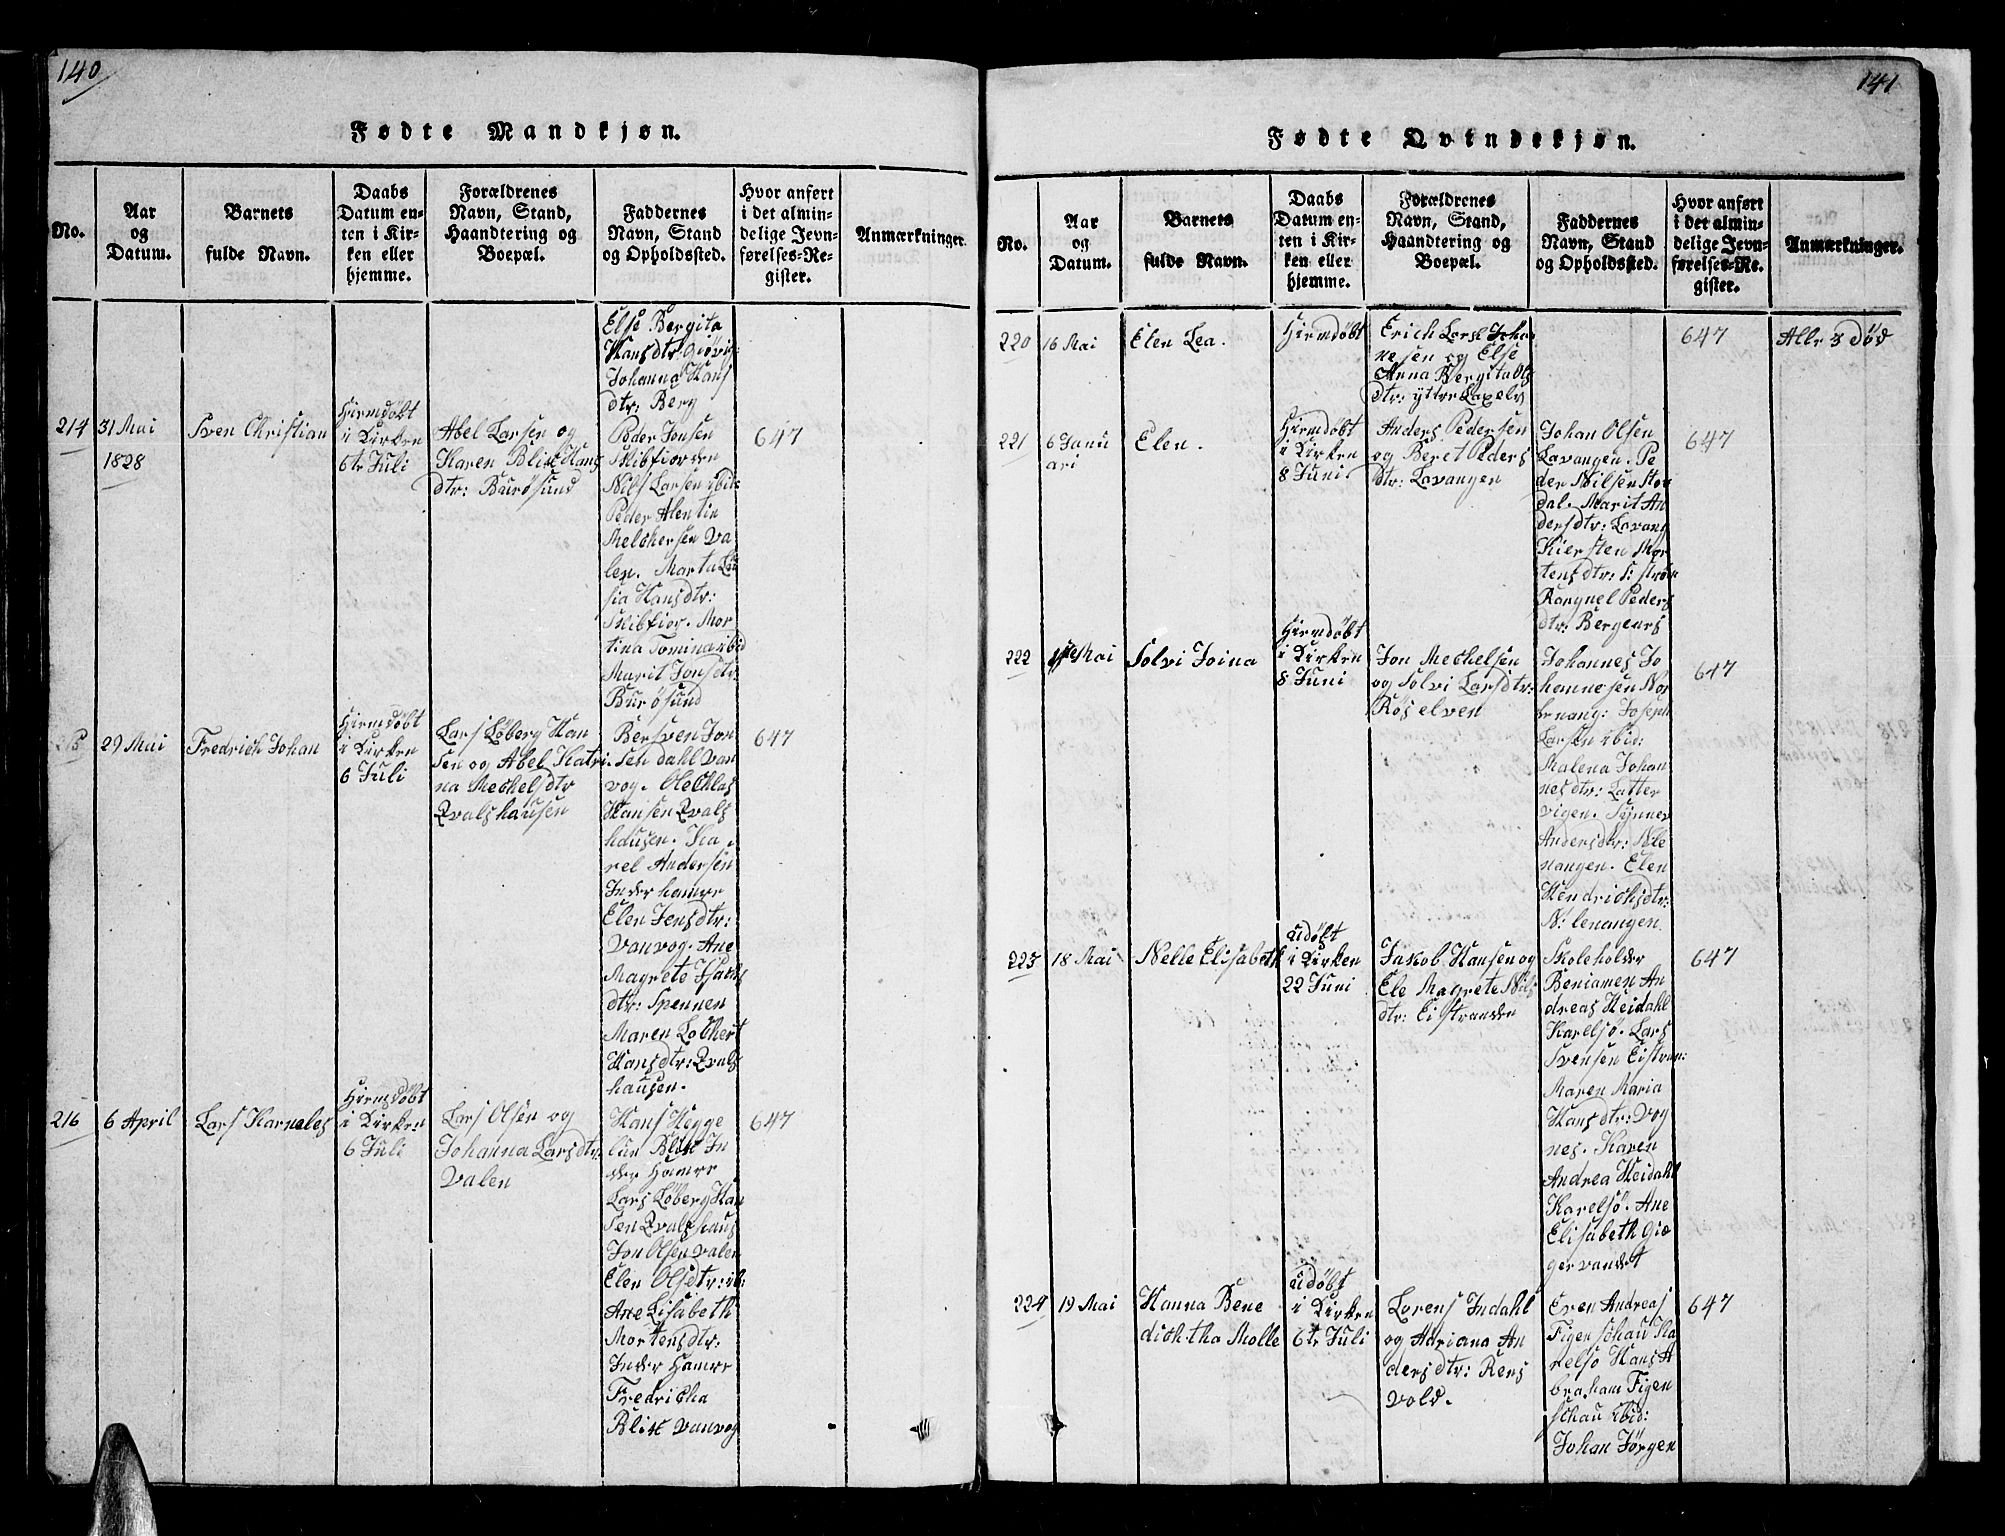 140
Fødte Mandkjøn.
No.
Aar
og
Datum.
Barnets
fulde Navn.
Daabs
Datum en-
ten i Kir-
ken eller
hjemme.
Forældrenes
Navn, Stand,
Haandtering og
Boepæl.
Faddernes
Navn, Stand
og Opholdssted.
Hvor anført
i det almin-
delige Jevn-
førelses-Re-
gister.
Anmærkninger.
Else Bergita
Hansdtr: Giövig
Johanna Hans
dtr: Berg
214
31 Mai
1828
Sven Christian
Hiemdöbt
i Kirken
6te Juli
Abel Larsen og
Karen Blix Hans
dtr: Burösund
Peder Jonsen
Skibfiorden
Nils Larsen ibit:
Peder Alentin
Melchersen Va
len. Marta Lou
sia Hansdtr:
Skibfior. Mor
tina Tomina ibid
Marit Jonsdtr:
Burösund
647
215
29 Mai
Fredrich Johan
Hiemsdöbt
i Kirken
6 Juli
Lars Löberg Han
sen og Abel Katri
na Mechelsdtr
Qvalshausen
Bersven Jon
sen dahl Van
vog. Ole Clas
Hansen Qvals
hausen. Ka
rel Andersen
Inder hamre
Elen Jensdtr:
Vanvog. Ane
Magrete Isachs
dtr: Spennen
Maren Lothert
Hansdtr: Qvals
hausen.
647
216
6 April
Lars Karneles
Hiemsdöbt
i Kirken
6 Juli
Lars Olsen og
Johanna Larsdtr:
Valen
Hans Hegge
lun Blix In
der Hamre
Lars Löberg Han
sen Qvalshaus
Jon Olsen Valen
Elen Olsdtr: ib:
Ane Lisabeth
Mortensdtr:
Inder Hamre
Fredricha
Blix Vanvog
647
141
Fødte Qvindekjøn.
No.
Aar
og
Datum.
Barnets
fulde Navn.
Daabs
Datum en-
ten i Kir-
ken eller
hjemme.
Forældrenes
Navn, Stand,
Haandtering og
Boepæl.
Faddernes
Navn, Stand
og Opholdssted.
Hvor anført
i det almin-
delige Jevn-
førelses-Re-
gister.
Anmærkninger.
220
16 Mai
Elen Lea.
Hiemdöbt
Erich Lars Joha
nesen og Else
Anna Bergita Ols
dtr: ytre Laxelv
647
Alle 3 död
221
6 Janu
ari
Elen.
Hiemdöbt
i Kirken
8 Juni
Anders Pedersen
og Beret Peders
dtr: Lavangen
Johan Olsen
Lavangen. Pe
der Nilsen Stor
dal. Marit An
dersdtr: Lavang
Kiersten Mor
tensdtr: S: ström
Rangnel Peders
dtr: Bergeurs
647
222
Mai
Solvi Joina
Hiemdöbt
i Kirken
8 Juni
Jon Mechelsen
og Solvi Larsdtr:
Röselven
Johannes Jo
hannesen Nor
lenang: Joseph
Larsen ibid:
Malena Johan
nesdtr: Latter
vigen. Synnev
Andersdtr: N: le
nangen. Elen
Hendrichsdtr:
N: lenangen
647
223
18 Mai
Nelle Elisabeth
udöbt
i Kirken
22 Juni
Jakob Hansen og
Ele Magrete Nils
dtr: Eistranden
Skoleholder
Beniamen An
dreas Heidahl
Karelsö. Lars
Svensen Eistran:
Maren Maria
Hansdtr: Vog
nes. Karen
Andrea Heidahl
Karelsö. Ane
Elisabeth Giæ
gervandet
647
224
19 Mai
Hanna Bene
dichtha Molle
udöbt
i Kirken
6te Juli
Lorens Indahl
og Adriana An
dersdtr: Rens
vold.
Even Andreas
Figenschau Ka
relsö Hans A
braham Figen
schau ibid:
Johan Jörgen
647